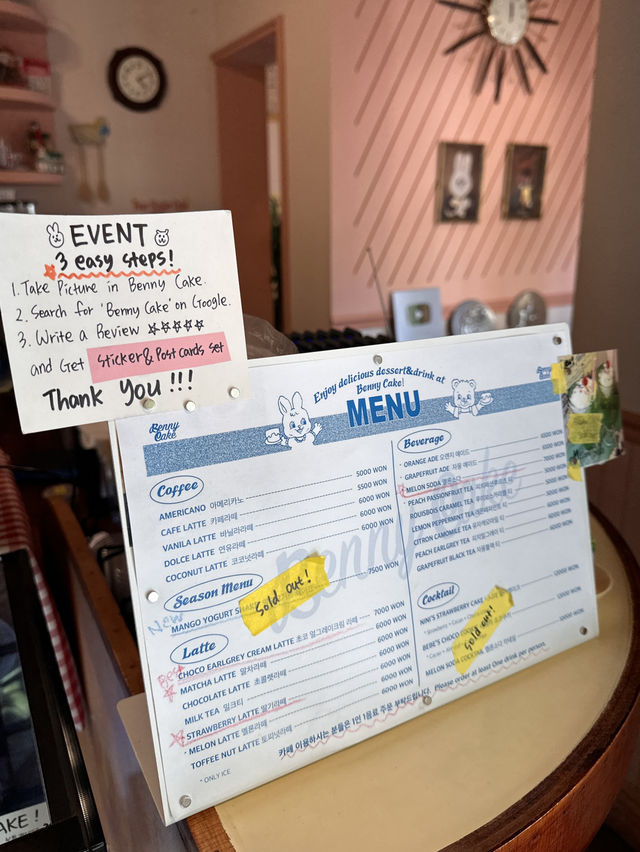 EVENT
3 easy steps!
1. Take Picture in Benny Cake.
2. Search for 'Benny Cake' on Google.
3. Write a Review ☆☆☆☆☆
and Get Sticker & Post cards set
Thank You !!!
Benny Cake
Enjoy delicious dessert&drink at
Benny Cake!
MENU
Coffee
AMERICANO 아메리카노 5000 WON
CAFE LATTE 카페라떼 5500 WON
VANILA LATTE 바닐라라떼 6000 WON
DOLCE LATTE 연유라떼 6000 WON
COCONUT LATTE 코코넛라떼 6000 WON
Season Menu
New
MANGO YOGURT 7500 WON
Sold out!
Latte
Best
CHOCO EARLGREY CREAM LATTE 초코 얼그레이크림 라떼 7000 WON
MATCHA LATTE 말차라떼 6000 WON
CHOCOLATE LATTE 초콜렛라떼 6000 WON
MILK TEA 밀크티 6000 WON
STRAWBERRY LATTE 딸기라떼 6000 WON
* MELON LATTE 멜론라떼 6000 WON
TOFFEE NUT LATTE 토피넛라떼 6000 WON
* ONLY ICE
Beverage
* ORANGE ADE 오렌지 에이드
* GRAPEFRUIT ADE 자몽 에이드
* MELON SODA 멜론소다
* PEACH PASSIONFRUIT TEA
ROUISBOS CARAMEL TEA
LEMON PEPPERMINT TEA
CITRON CAMOMILE TEA
PEACH EARLGREY TEA
GRAPEFRUIT BLACK TEA
Cocktail
NINI'S STRAWBERRY CAKE
BEBE'S CHOCO
Sold out!
MELON SODA COCKTAIL
카페 이용하시는 분들은 1인 1음료 주문 부탁드립니다. Please order at least One drink per person.
Benny
AKE !